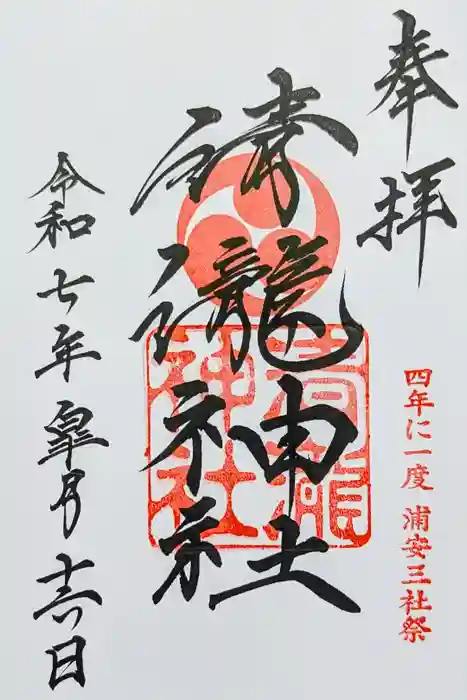 奉拝
四年に一度 浦安三社祭
清瀧神社
清瀧
神社
令和七年皐月十六日